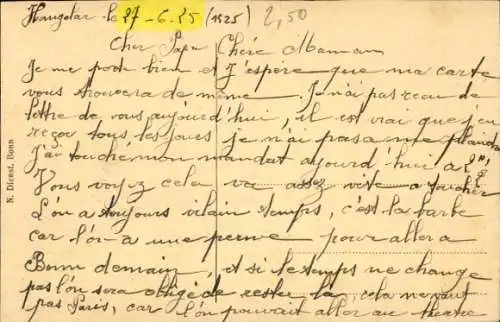 Hangelar le 27-6-25 (1925) 2,50
Cher Papa Chère Maman
Je me porte bien et j'espère que ma carte
vous trouvera de même. Je n'ai pas reçu de
lettre de vous aujourd'hui, il est vrai que j'en
reçoi tous les jours je n'ai pas a me plaindre
J'ai touché mon mandat aujourd'hui a
Vous voyez cela va assez vite a toucher
L'on a toujours vilain temps, c'est la barbe
car l'on a une perme pour aller a
Bonn demain, et si le temps ne change
pas l'on sera obligé de rester la, cela ne vaut
pas Paris, car l'on pouvait aller au théatre
N. Dienst, Bonn